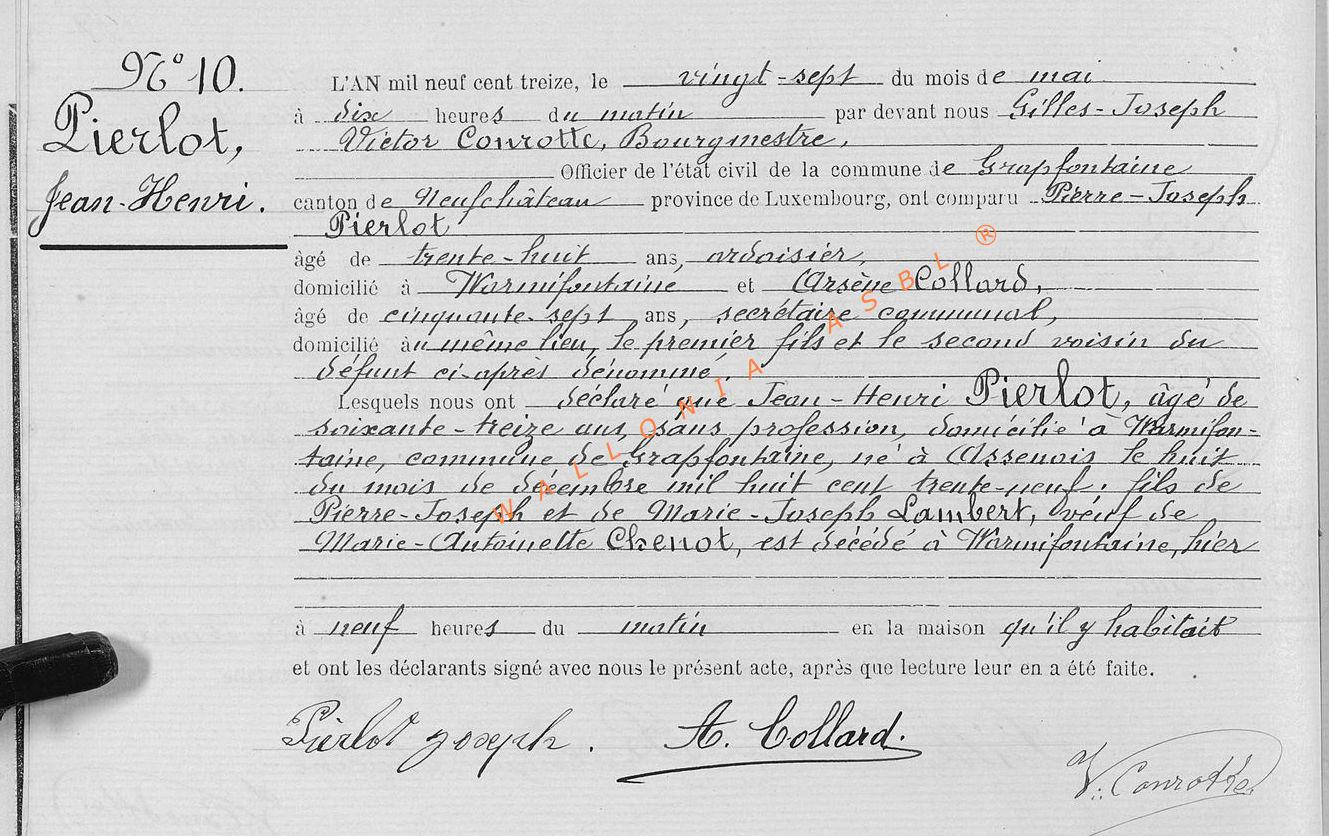 N° 10.
Pierlot,
Jean-Henri.
L'AN mil neuf cent treize, le vingt-sept du mois de mai
à dix heures du matin par devant nous Gilles-Joseph
Victor Conrotte, Bourgmestre,
Officier de l'état civil de la commune de Grapfontaine
canton de Neufchâteau province de Luxembourg, ont comparu Pierre-Joseph
Pierlot
âgé de trente-huit ans, ardoisier,
domicilié à Warmifontaine et Arsène Collard,
âgé de cinquante-sept ans, secrétaire communal,
domicilié au même lieu, le premier fils et le second voisin du
défunt ci-après dénommé.
Lesquels nous ont déclaré que Jean-Henri Pierlot, âgé de
soixante-treize ans, sans profession, domicilié à Warmifon-
taine, commune de Grapfontaine, né à Assenois le huit
du mois de décembre mil huit cent trente-neuf; fils de
Pierre-Joseph et de Marie-Joseph Lambert, veuf de
Marie-Antoinette Chenot, est décédé à Warmifontaine, hier
à neuf heures du matin en la maison qu'il y habitait
et ont les déclarants signé avec nous le présent acte, après que lecture leur en a été faite.
Pierlot Joseph. A. Collard.
V. Conrotte
WALLONIA ASBL ®